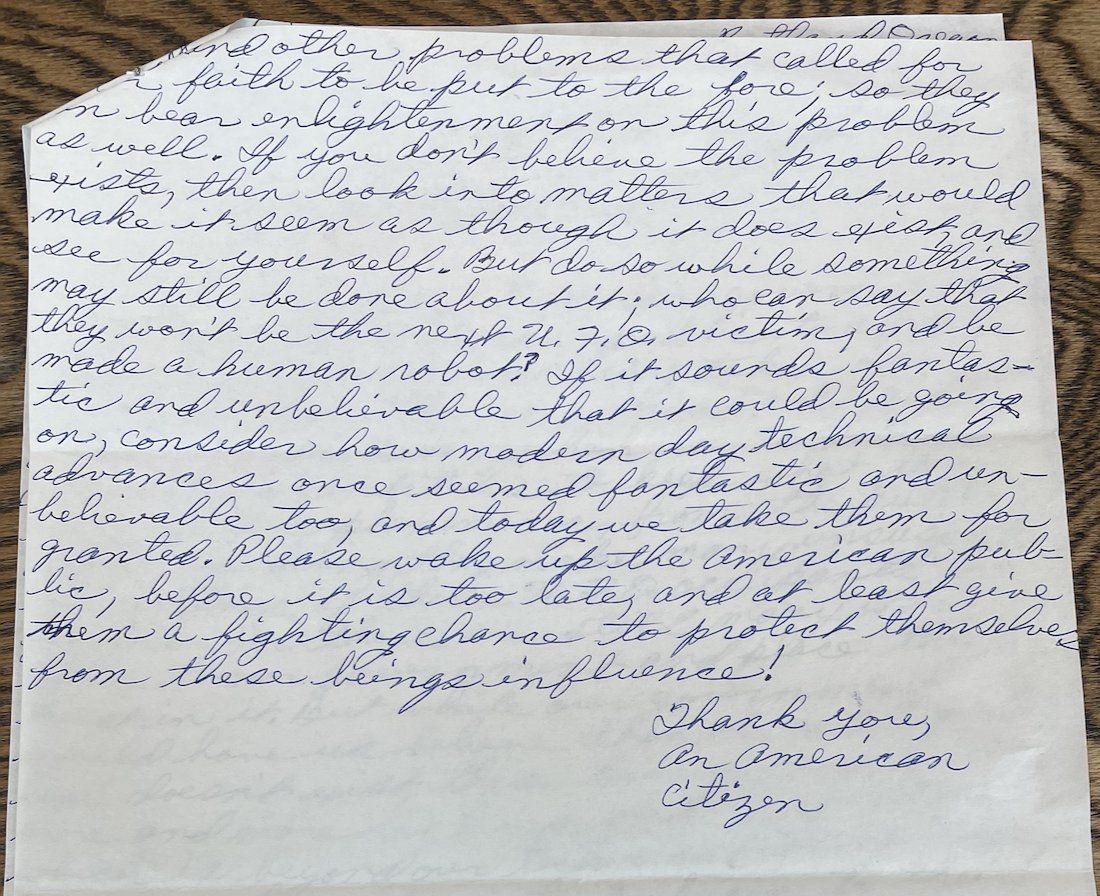 Portland Oregon
and other problems that called for
faith to be put to the fore; so they
bear enlightenment on this problem
as well. If you don't believe the problem
exists, then look into matters that would
make it seem as though it does exist, and
see for yourself. But do so while something
may still be done about it; who can say that
they won't be the next U.F.O. victim, and be
made a human robot? If it sounds fantas-
tic and unbelievable that it could be going
on, consider how modern day technical
advances once seemed fantastic and un-
believable too, and today we take them for
granted. Please wake up the American pub-
lic, before it is too late, and at least give
them a fighting chance to protect themselves
from these beings influence!
Thank you,
An American
Citizen